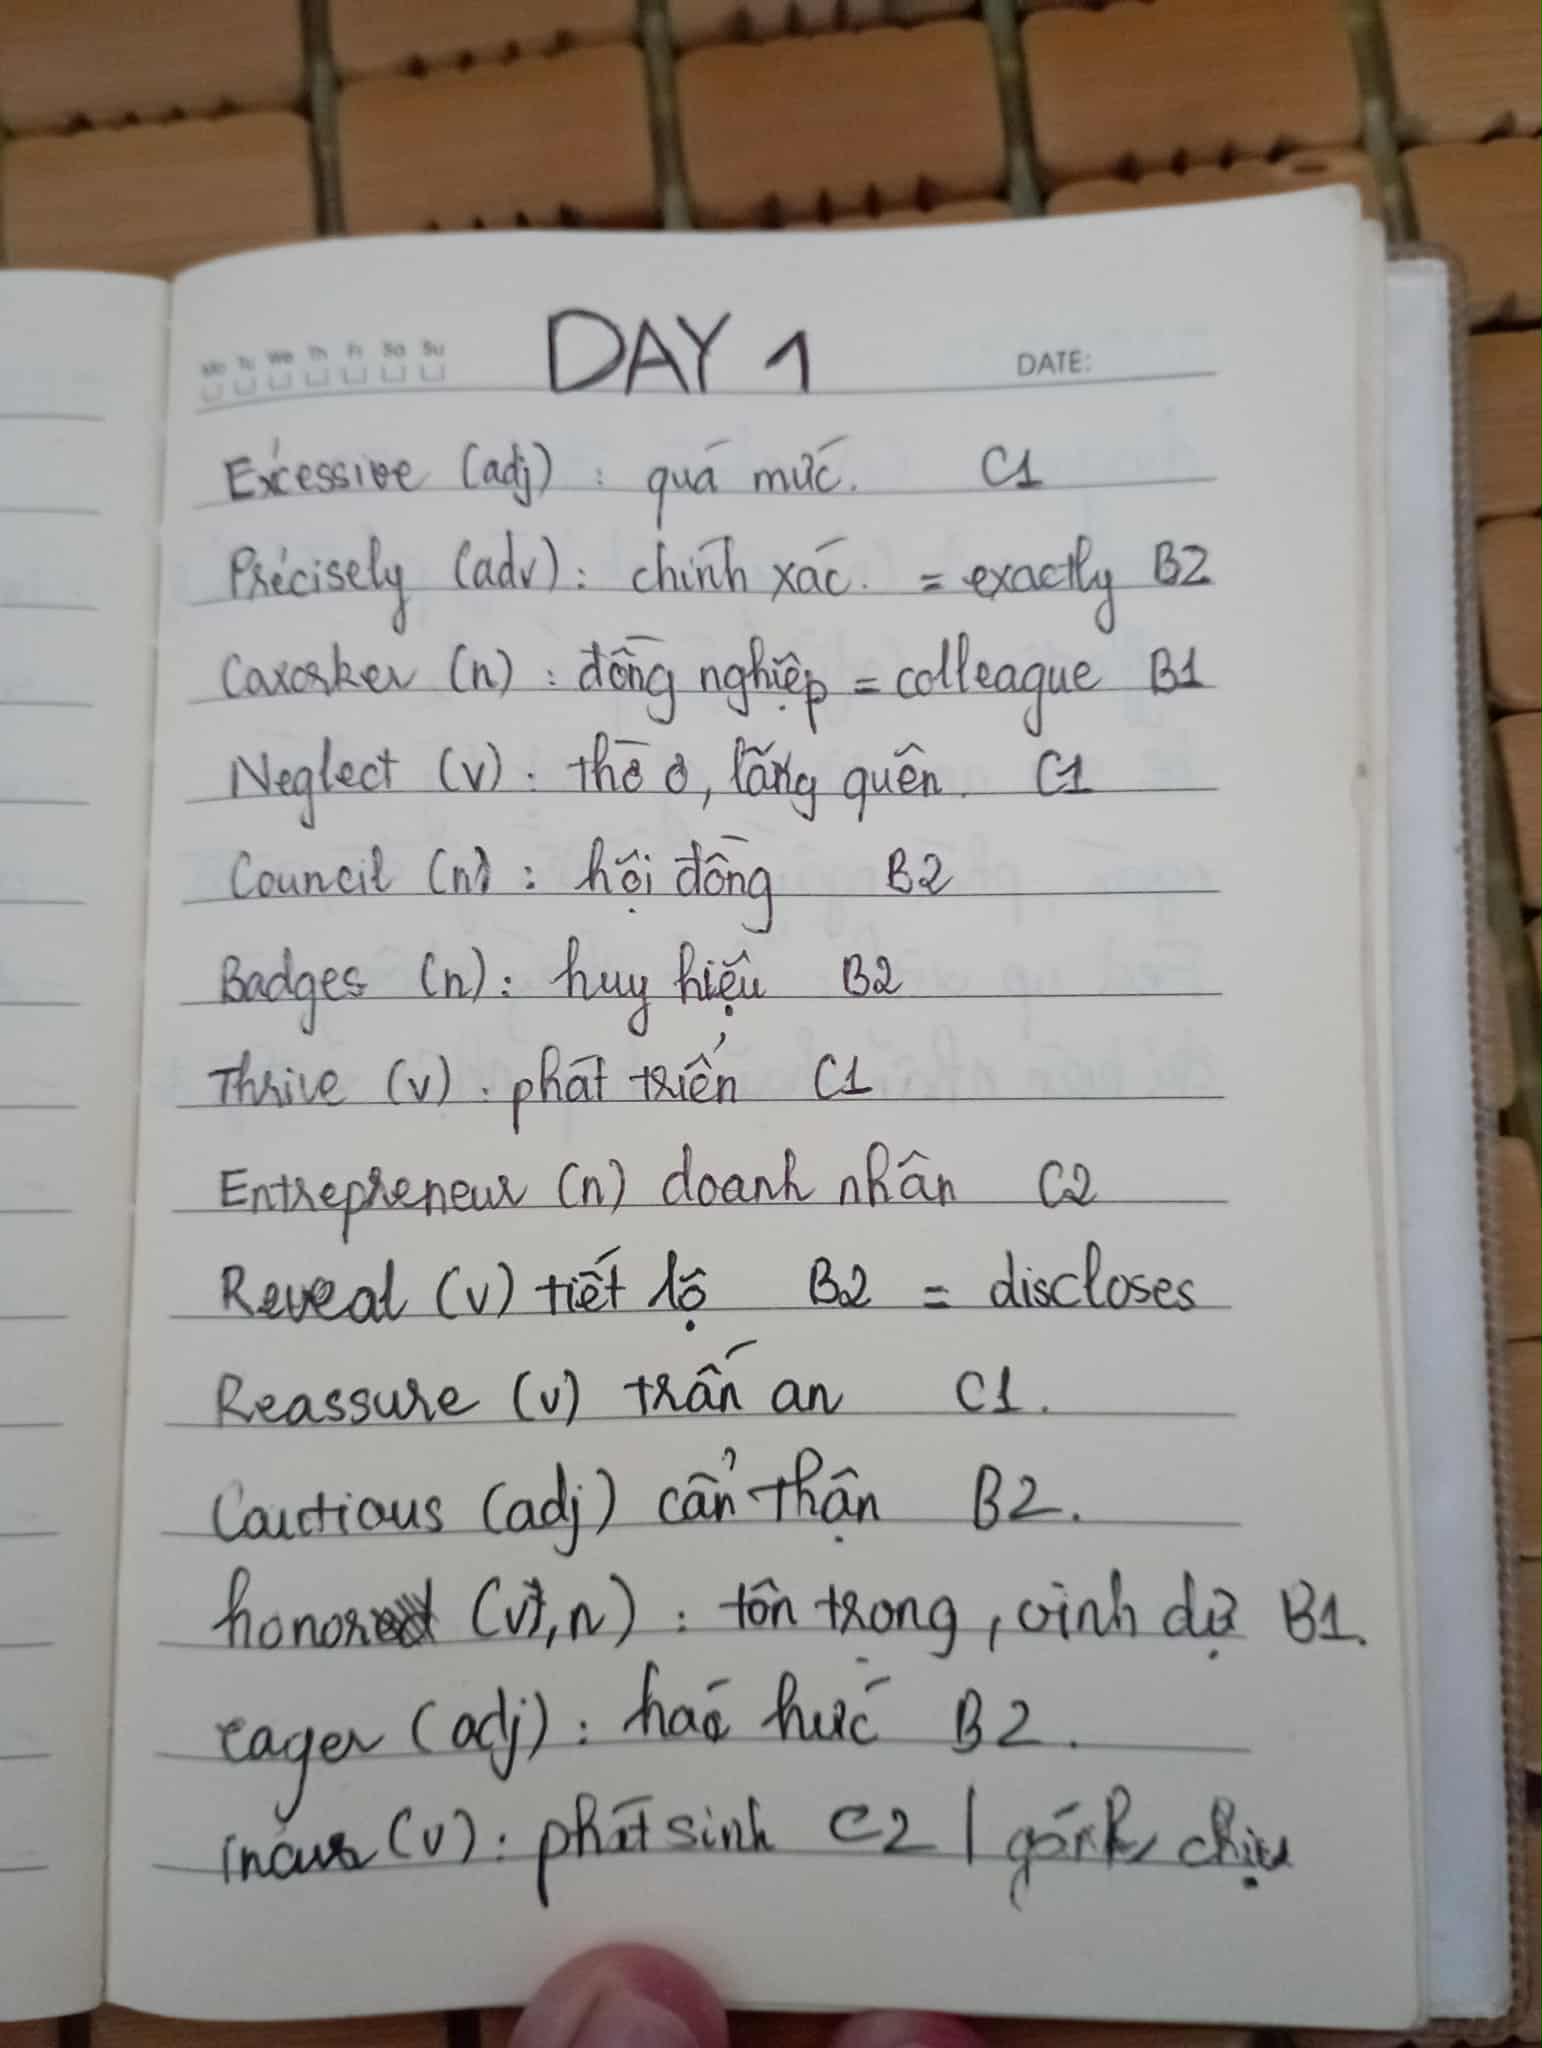 Mo Tu We Th Fr Sa Su DAY 1 DATE:
Excessive (adj) : quá mức. C1
Precisely (adv) : chính xác. = exactly B2
Coworker (n) : đồng nghiệp = colleague B1
Neglect (v) : thờ ơ, lãng quên. C1
Council (n) : hội đồng B2
Badges (n) : huy hiệu B2
Thrive (v) : phát triển C1
Entrepreneur (n) doanh nhân C2
Reveal (v) tiết lộ B2 = discloses
Reassure (v) trấn an C1.
Cautious (adj) cẩn thận B2.
honor (v, n) : tôn trọng, vinh dự B1.
eager (adj) : háo hức B2.
incur (v) : phát sinh C2 | gánh chịu